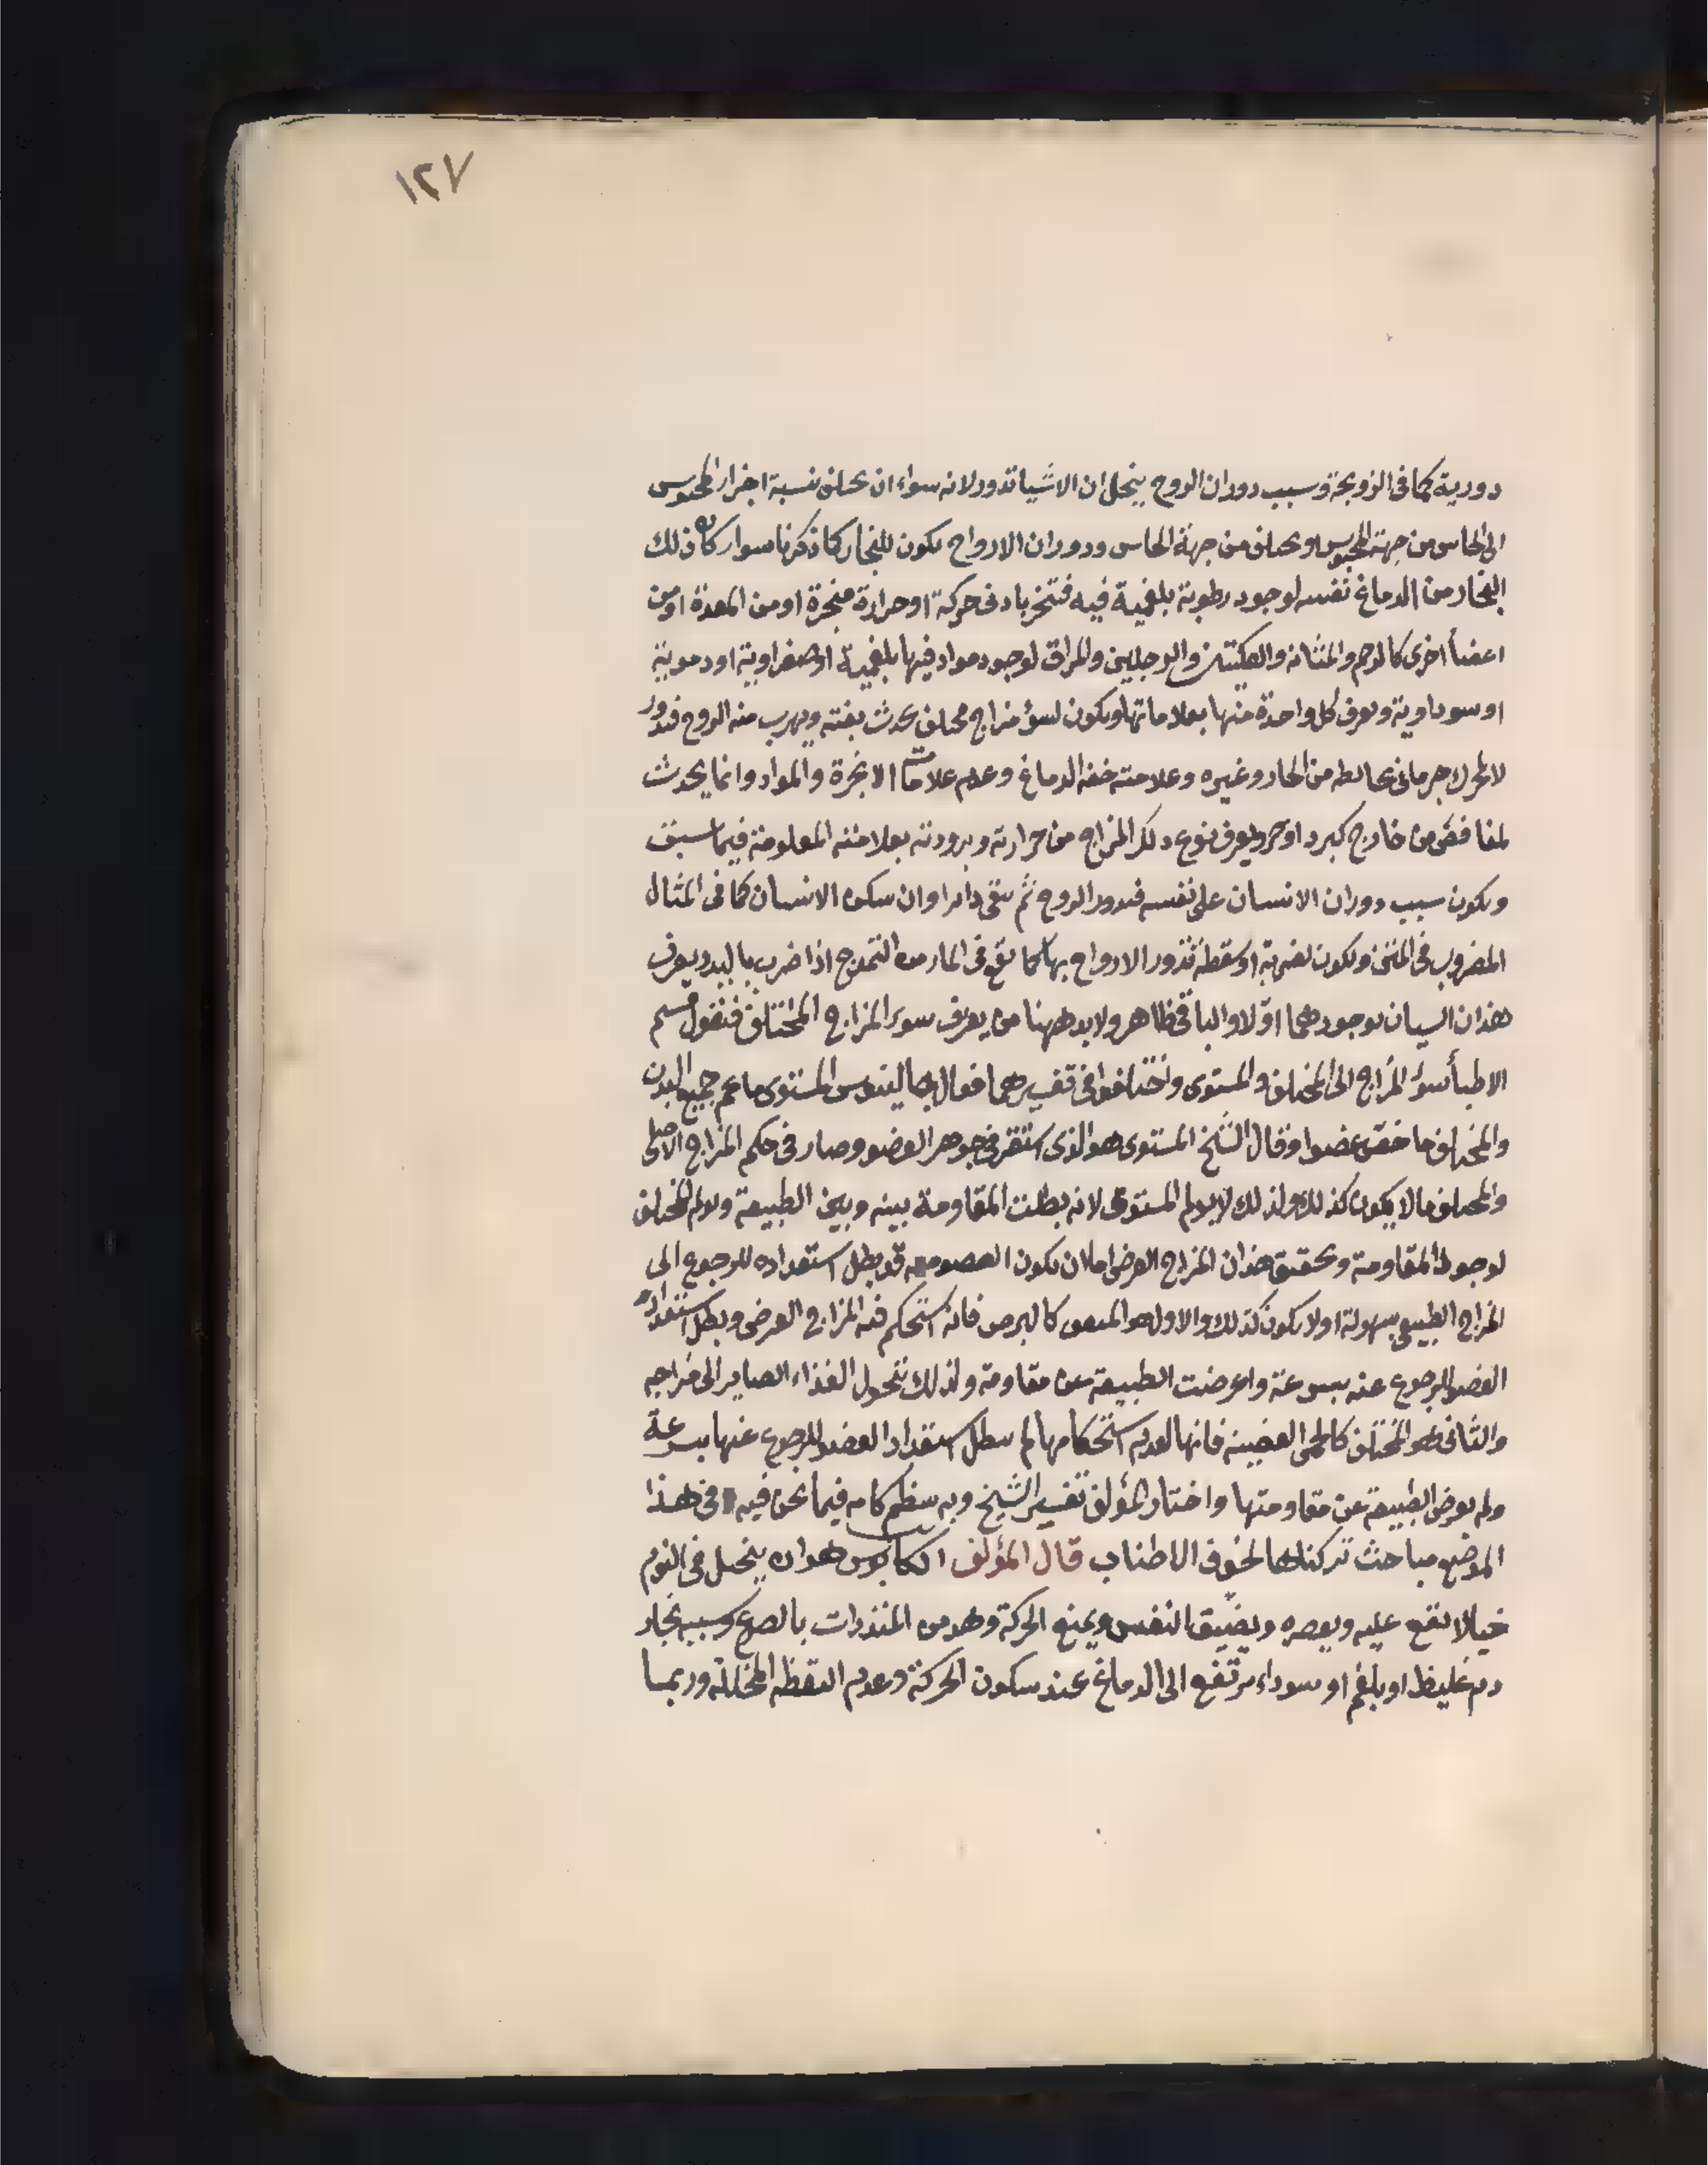 ١٢٧
دورية كما فى الزوبعة وسبب دوران الروح يتخيل ان الاشيا تدور لانه سواء ان يختلف نسبة اجزاء المحسوس
الى الحاس من جهة المحسوس او يختلف من جهة الحاس ودوران الارواح يكون للبخار كما ذكرنا سواء كان ذلك
البخار من الدماغ نفسه لوجود رطوبة بلغمية فيه فتبخر بادنى حركة او حرارة مبخرة او من المعدة او من
اعضأ اخرى كالرحم والمثانه والكليتين والرجلين والمراق لوجود مواد فيها بلغمية او صفراوية او دموية
او سوداوية ويعرف كل واحدة منها بعلاماتها ويكون لسؤ مزاج مختلف يحدث بغته ويهرب منه الروح فيدور
لا لمحرك جرمانى يخالطه من الحار وغيره وعلامته خفه الدماغ وعدم علامات الابخرة والمواد وانما يحدث
لمغافصٍ من خارج كبرد او حر ويعرف نوع ذلك المزاج من حرارته وبرودته بعلامته المعلومة فيما سبق
ويكون سبب دوران الانسان على نفسه فيدور الروح ثم يبقى دايرا وان سكن الانسان كما فى المثال
المضروب فى المتن ويكون لضربة او سقطه تدور الارواح بها كما يقع فى الماء من التموج اذا ضرب باليد ويعرف
هذان السببان بوجودهما اوّلا والباقى ظاهر ولابد ههنا من يعرف سوء المزاج المختلف فنقول قسم
الاطبأ سؤ المزاج الى المختلف والمستوى واختلفوا فى تفسيرهما فقال جالينوس المستوى ما عم جميع البدن
والمختلف ما خص عضوا وقال الشيخ المستوى هو الذى استقر فى جوهر العضو وصار فى حكم المزاج الاصلى
والمختلف ما لا يكون كذلك ولذلك لا يولم المستوى لانه بطلت المقاومة بينه وبين الطبيعة ويولم المختلف
لوجود المقاومة وتحقيق هذا ان المزاج العرضى اما ان يكون العضو معه قد بطل استعداده للرجوع الى
المزاج الطبيعى بسهولة او لا يكون كذلك والاول هو المتفق كالبرص فانه استحكم فيه المزاج العرضى وبطل استعداد
العضو للرجوع عنه بسرعة واعرضت الطبيعة عن مقاومة ولذلك تتحول الغذاء الصاير الى مزاجه
والثانى هو المختلف كالحمى العفنية فانها لعدم استحكامها لم يبطل استعداد العضو للرجوع عنها بسرعة
ولم يعرض الطبيعة عن مقاومتها واختار المؤلف تفسير الشيخ وبه ينظم كلامه فيما نحن فيه فى هذا
الموضع مباحث تركناها لخوف الاطناب قال المؤلف الكابوس هو ان يتخيل فى النوم
خيالا يقع عليه ويعصره ويضيّق النفس ويمنع الحركة وهو من المنذرات بالصرع وسببه بخار
دم غليظ او بلغم او سوداء يرتفع الى الدماغ عند سكون الحركة وعدم اليقظه المحللة وربما